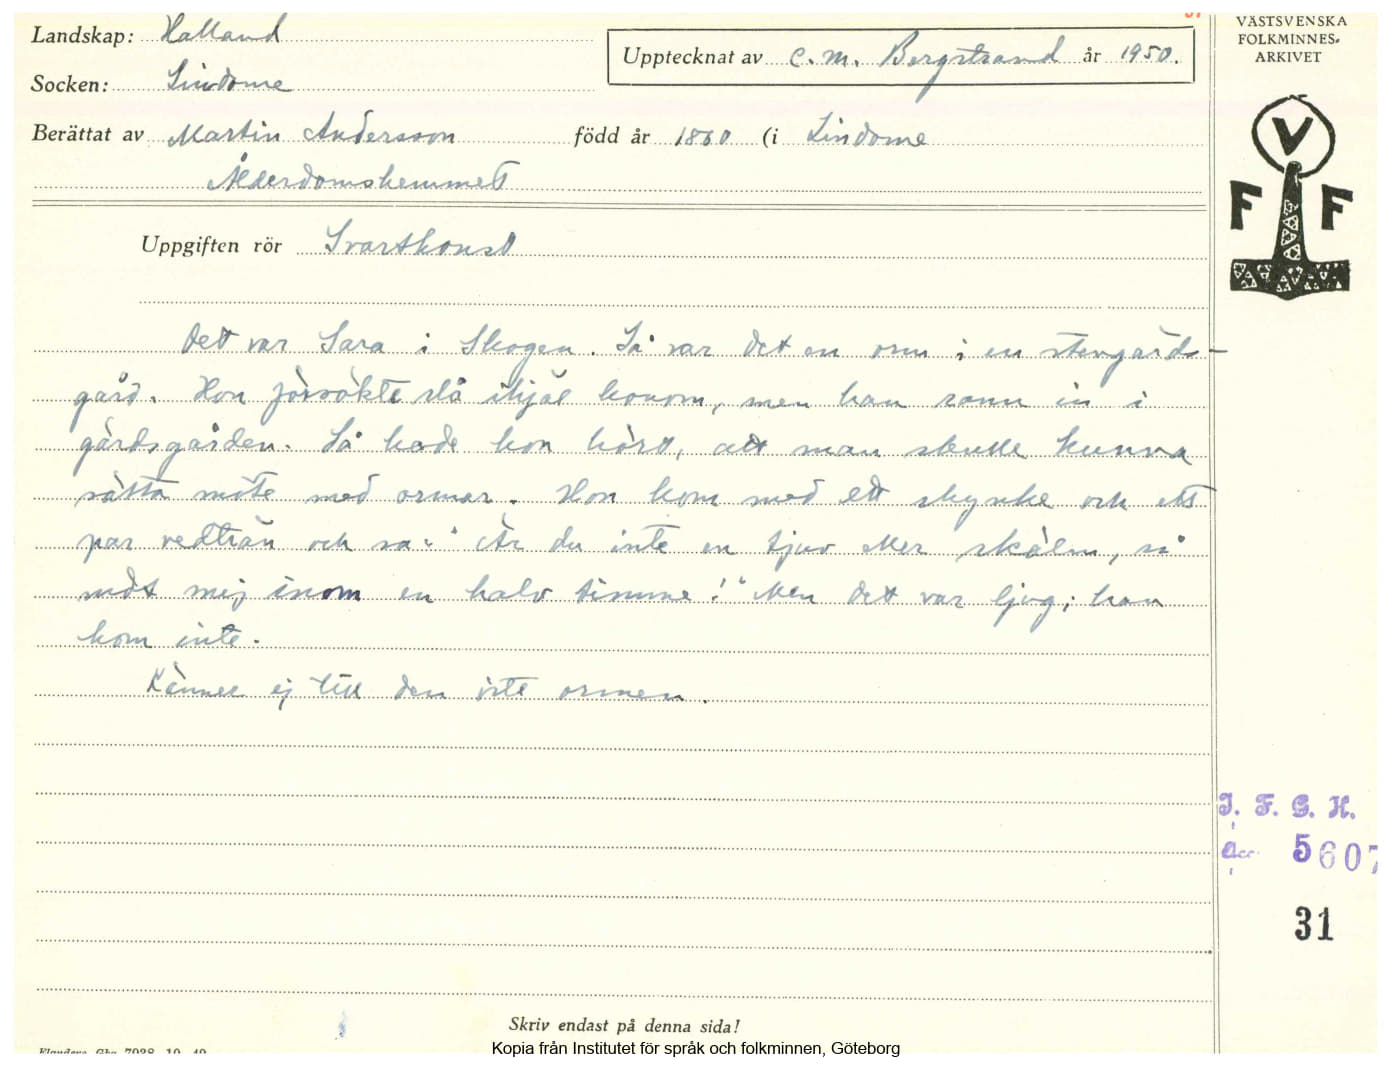 Landskap: Halland
Socken: Lindome
Upptecknat av C. M. Bergstrand år 1950.
Berättat av Martin Andersson född år 1860 (i Lindome
Ålderdomshemmet
Uppgiften rör Svartkonst
Det var Sara i Skogen. Så var det en orm i en stengärds-
gård. Hon försökte slå ihjäl honom, men han rann in i
gärdsgården. Så hade hon hört, att man skulle kunna
sätta möte med ormar. Hon kom med ett skynke och ett
par vedträn och sa: "Är du inte en tjuv eller skälm, så
möt mej inom en halv timme!" Men det var ljug; han
kom inte.
Känner ej till den vite ormen.
VÄSTSVENSKA
FOLKMINNES-
ARKIVET
V
F F
I. F. G. H.
Acc. 5607
31
Skriv endast på denna sida!
Kopia från Institutet för språk och folkminnen, Göteborg